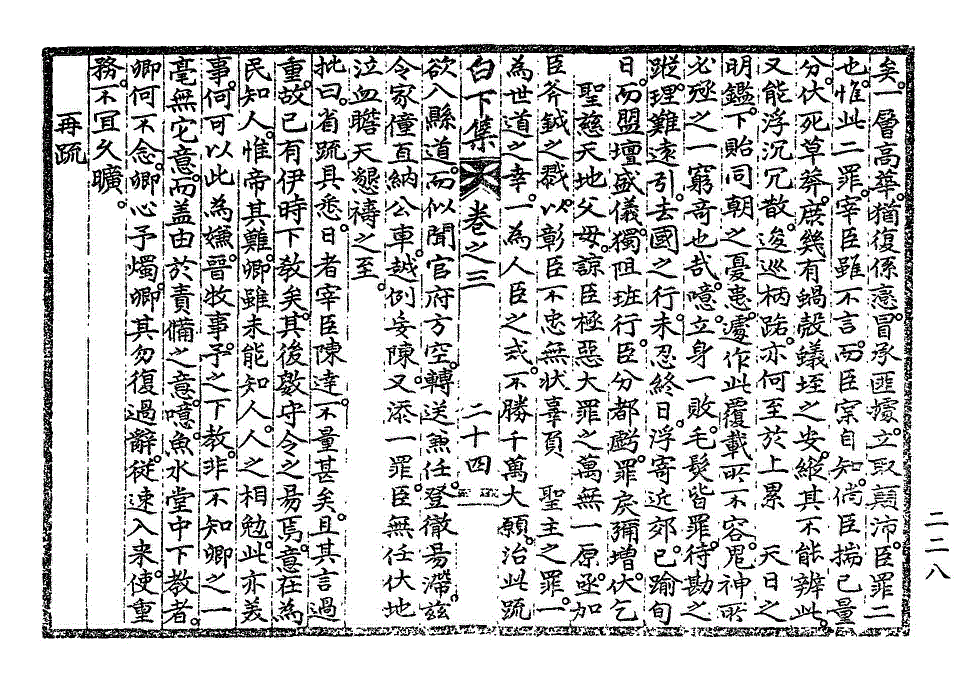 矣。一層高華。猶復係戀。冒承匪據。立取顚沛。臣罪二
也。惟此二罪。宰臣雖不言。而臣宗自知。倘臣揣己量
分。伏死草莽。庶幾有蝸殼蟻垤之安。縱其不能辦此。
又能浮沉冗散。逡巡柄路。亦何至於上累　天日之
明鑑。下貽同朝之憂患。遽作此覆載所不容。鬼神所
必殛之一窮奇也哉。噫。立身一敗。毛髮皆罪。待勘之
蹤。理難遠引。去國之行。未忍終日。浮寄近郊。已踰旬
日。而盟壇盛儀。獨阻班行。臣分都虧。罪戾彌增。伏乞
聖慈天地父母。諒臣極惡大罪之萬無一原。亟加
臣斧鉞之戮。以彰臣不忠無狀辜負　聖主之罪。一
為世道之幸。一為人臣之戒。不勝千萬大願。治此疏
白下集　卷之三　二十四
欲入縣道。而似聞官府方空。轉送無任。登徹易滯。玆
令家僮直納公車。越例妄陳。又添一罪。臣無任伏地
泣血瞻天懇禱之至。
批曰。省疏具悉。日者宰臣陳達。不量甚矣。且其言過
重。故已有伊時下敎矣。其後數守令之昜焉。意在為
民知人。惟帝其難。卿雖未能知人。人之相勉。此亦美
事。何可以此為嫌。晉牧事。予之下敎。非不知卿之一
毫無它意。而盖由於責備之意。噫。魚水堂中下敎者。
卿何不念。卿心予燭。卿其勿復過辭。從速入来。使重
務。不宜久曠。
再疏
二二八